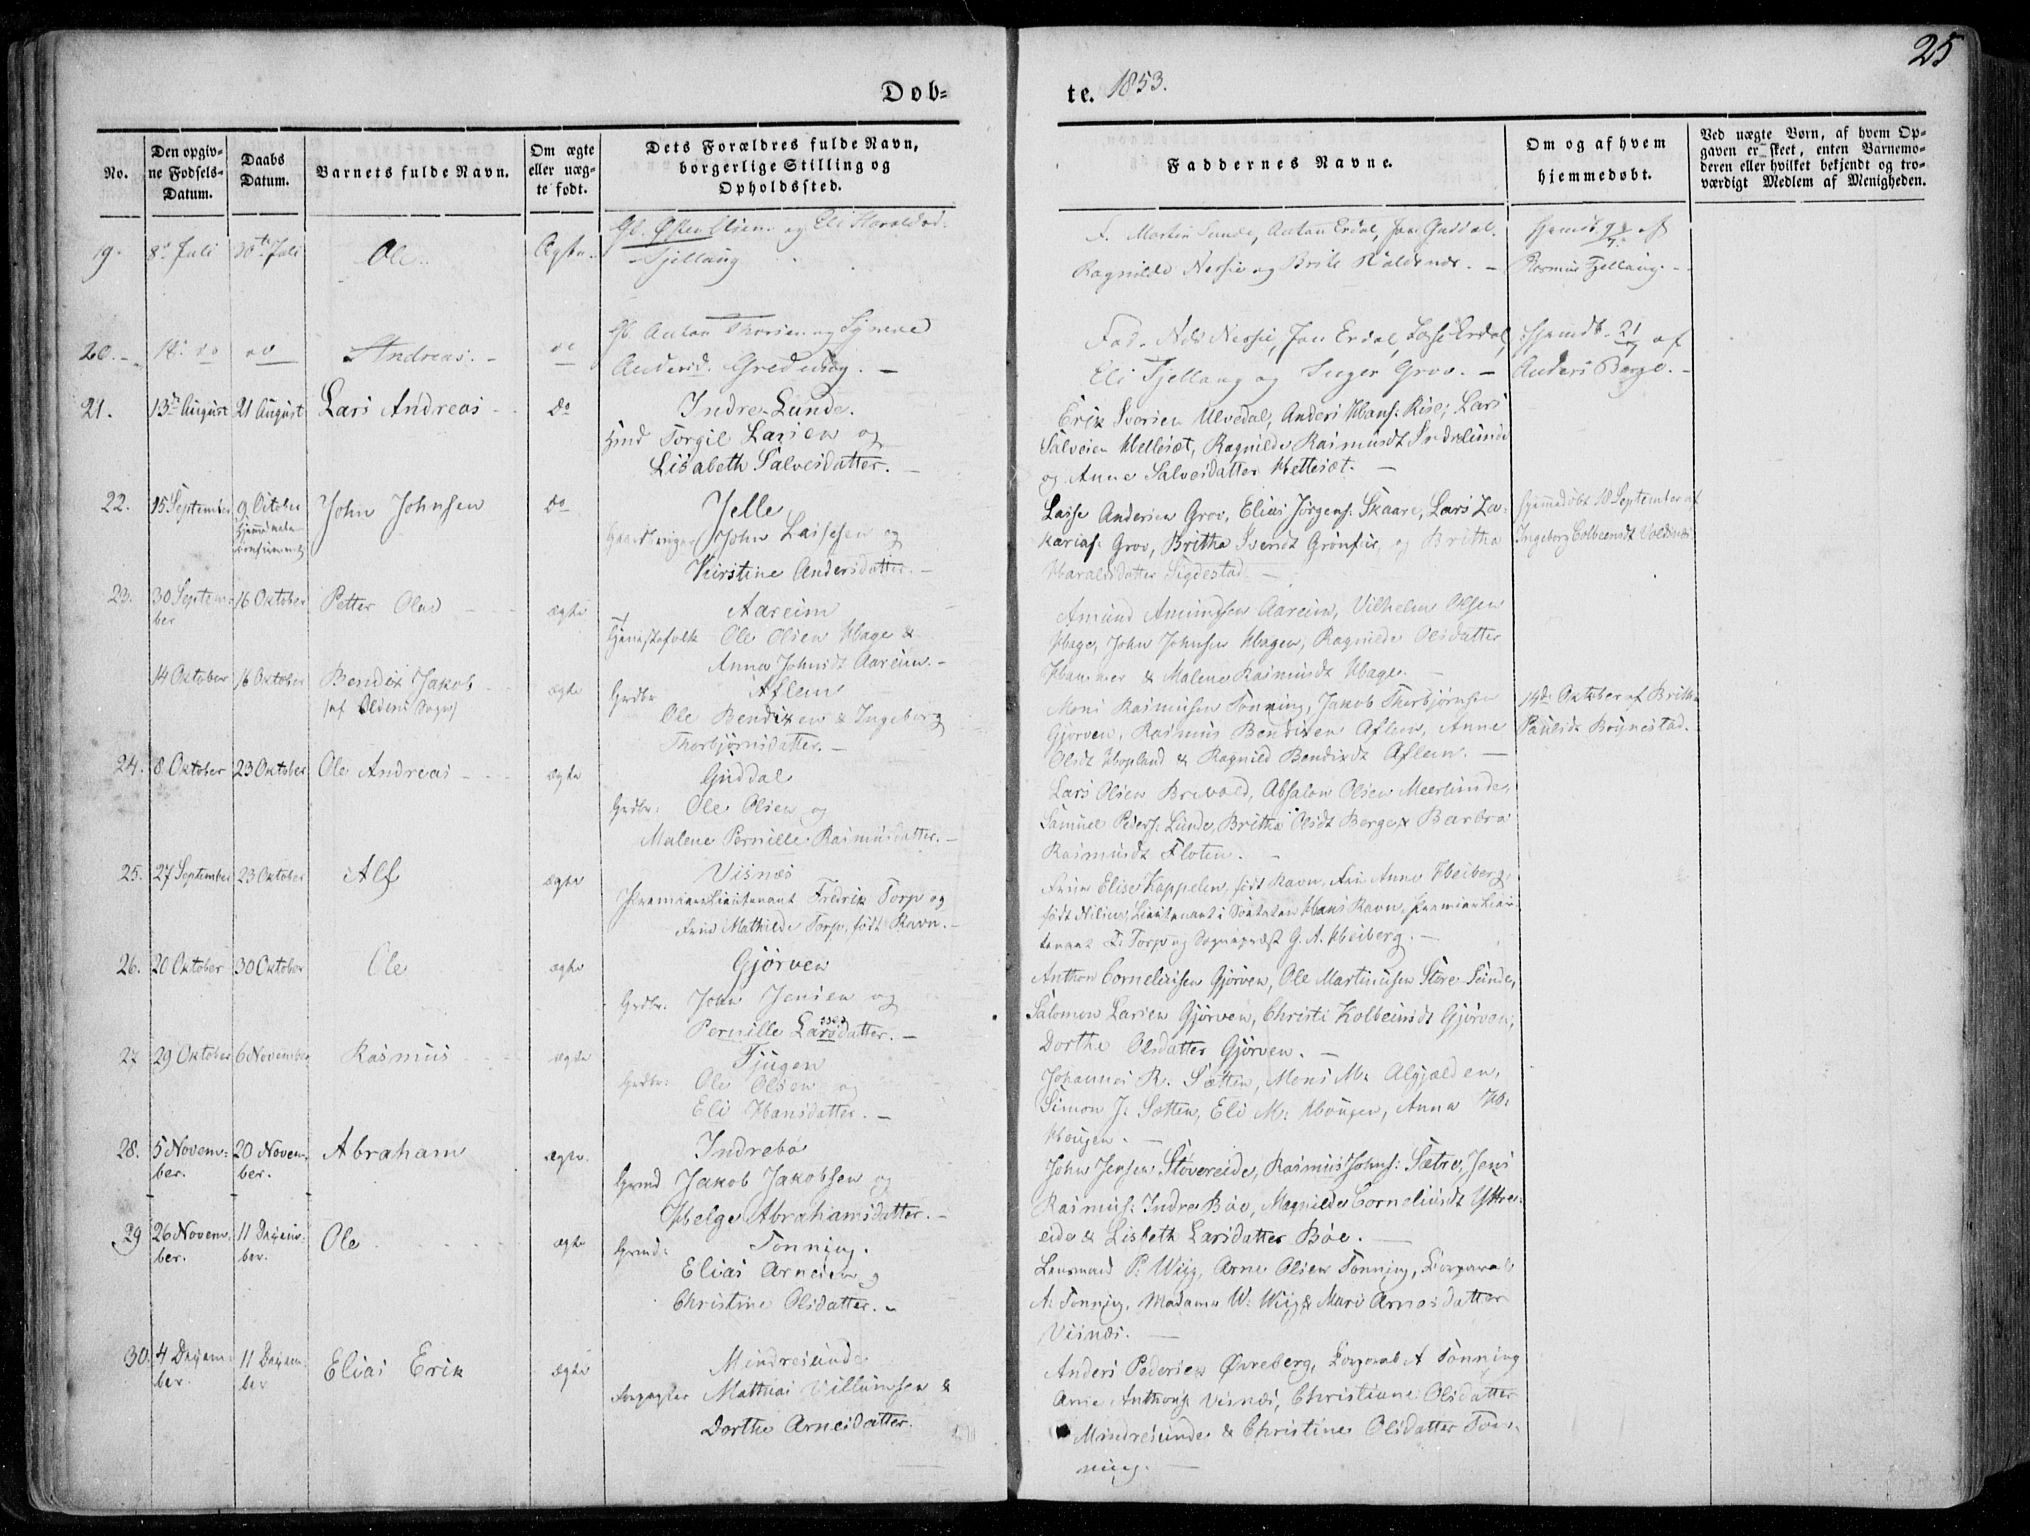 25
Døb-
te. 1853.
No.
Den opgivne Fødsels-Datum.
Daabs Datum.
Barnets fulde Navn.
Om ægte eller uægte født.
Dets Forældres fulde Navn, borgerlige Stilling og Opholdssted.
Faddernes Navne.
Om og af hvem hjemmedøbt.
Ved uægte Børn, af hvem Opgaven er skeet, enten Barnemoderen eller hvilket bekjendt og troværdigt Medlem af Menigheden.
19. 8de Juli 30te Juli Ole Ægte. Gb. Østen Olsen og Eli Haraldsd.
Fjellaug
F. Martin Sunde, Anton Erdal, Jon Guddal.
Ragnilde Nessie og Brite
Hjemdt af
Rasmus Fjellaug.
20. 14. do do Andreas. do Gb. Anton Thorsen og Synneve
Andersd. Gredung.
Fad. Nils Nessie, Jon Erdal, Lasse Erdal,
Eli Fjellaug og Inger Grov.
Hjemdt. 21/7 af
Anders Berge.
21. 13de August 21 August Lars Andreas Do Indre-Sunde.
Torgil Larsen og
Lisabeth Salvesdatter.
Erik Iversen Ulvedal, Anders Hans: Rise, Lars
Salvesen Hellesæt, Ragnilde Rasmusdt Indresunde
og Anne Salvesdatter Hellesæt.
22. 15 September 9 October John Johnsen Do Jelle
John Lassesen og
Kirstine Andersdatter.
Lasse Andersen Grov, Elias Jørgens: Skaare, Lars Za-
karias: Grov, Britha Svendt og Britha
Haraldsdatter Sigdestad.
hjemmedøbt 18 September af
Ingeborg Colbeensdt
23. 30 Septem- 16 Oktober Petter Olus ægte Aareim
ber
Tjenestefolk Ole Olsen Hage &
Anne Johnsdt Aareim.
Amund Amundsen Aareim, Vilhelm Olsen
Hage, John Johnsen Hagen, Ragnilde Olsdatter
Hammer & Malene Rasmusdt Hage.
14 Oktober 16 Oktober Bendix Jakob ægte Aflem
(af Oldens Sogn)
Grdbr Ole Bendixen & Ingeborg
Thorbjørnsdatter.
Mons Rasmusen Tonning, Jakob Thorbjørnsen
Gjørven, Rasmus Bendixen Aflem, Anne
Olsdt Hopland & Ragnild Bendixdt Aflem.
14de Oktober af Britha
Paulsdt Brynestad.
24. 8 Oktober 23 Oktober Ole Andreas ægte Guddal
Grdbr: Ole Olsen og
Malene Pernille Rasmusdatter.
Lars Olsen Brevold, Absalon Olsen Meerlunde,
Samuel Peders: Sunde, Britha Olsdt Berge & Barbro
Rasmusdt Floten.
25. 27 September 23 Oktober Alf ægte Visnæs
Premierlieutenant Fredrik Torp og
Frue Mathilde Torp, født Ravn.
Frue Elise Kappelen, født Ravn, Anne Heiberg,
født Nilius, Lieutenant Hans Ravn, Premierlieu-
tenant F: Torp og Sogneprest G. A. Heiberg.
26. 20 Oktober 30 Oktober Ole ægte Gjørven
Grdbr. John Jensen og
Pernille Larsdatter.
Anthon Corneliusen Gjørven, Ole Martinusen Store Sunde,
Salomon Larsen Gjørven, Christi Kolbeinsdt Gjørven,
Dorthe Olsdatter Gjørven.
27 29 Oktober 6 November Rasmus ægte Tjugen
Grdbr: Ole Olsen og
Eli Hansdatter.
Johannes R. Sætten, Mons M: Algjælden,
Simon J: Sætten, Eli M: Hougen, Anna
Hougen.
28. 5 Novem- 20 Novem- Abraham ægte. Indrebø
ber. ber.
Grmd Jakob Jakobsen og
Helge Abrahamsdatter.
John Jensen Støvereide, Rasmus Johns: Sætre, Jens
Rasmus: Indre Bøe, Magnilde Corneliusdt Yttre-
eide & Lisbeth Larsdatter Bøe.
29 26 Novem- 11 Decem- Ole ægte Tonning.
ber. ber.
Grmd: Elias Arnesen og
Christine Olsdatter.
Lensmand P: Wiig, Arne Olsen Tonning, Corporal
A: Tonning, Madame W: Wiig & Mari Arnesdatter
Visnæs.
30. 4 Decem- 11 Decem- Elias Erik ægte Mindresunde
ber ber
Forpagter Mathias Villumsen &
Dorthe Arnesdatter.
Anders Pedersen Øvreberg, Corporal A Tonning
Arne Anthons: Visnæs, Christiane Olsdatter
Mindresunde & Christine Olsdatter Ton-
ning.